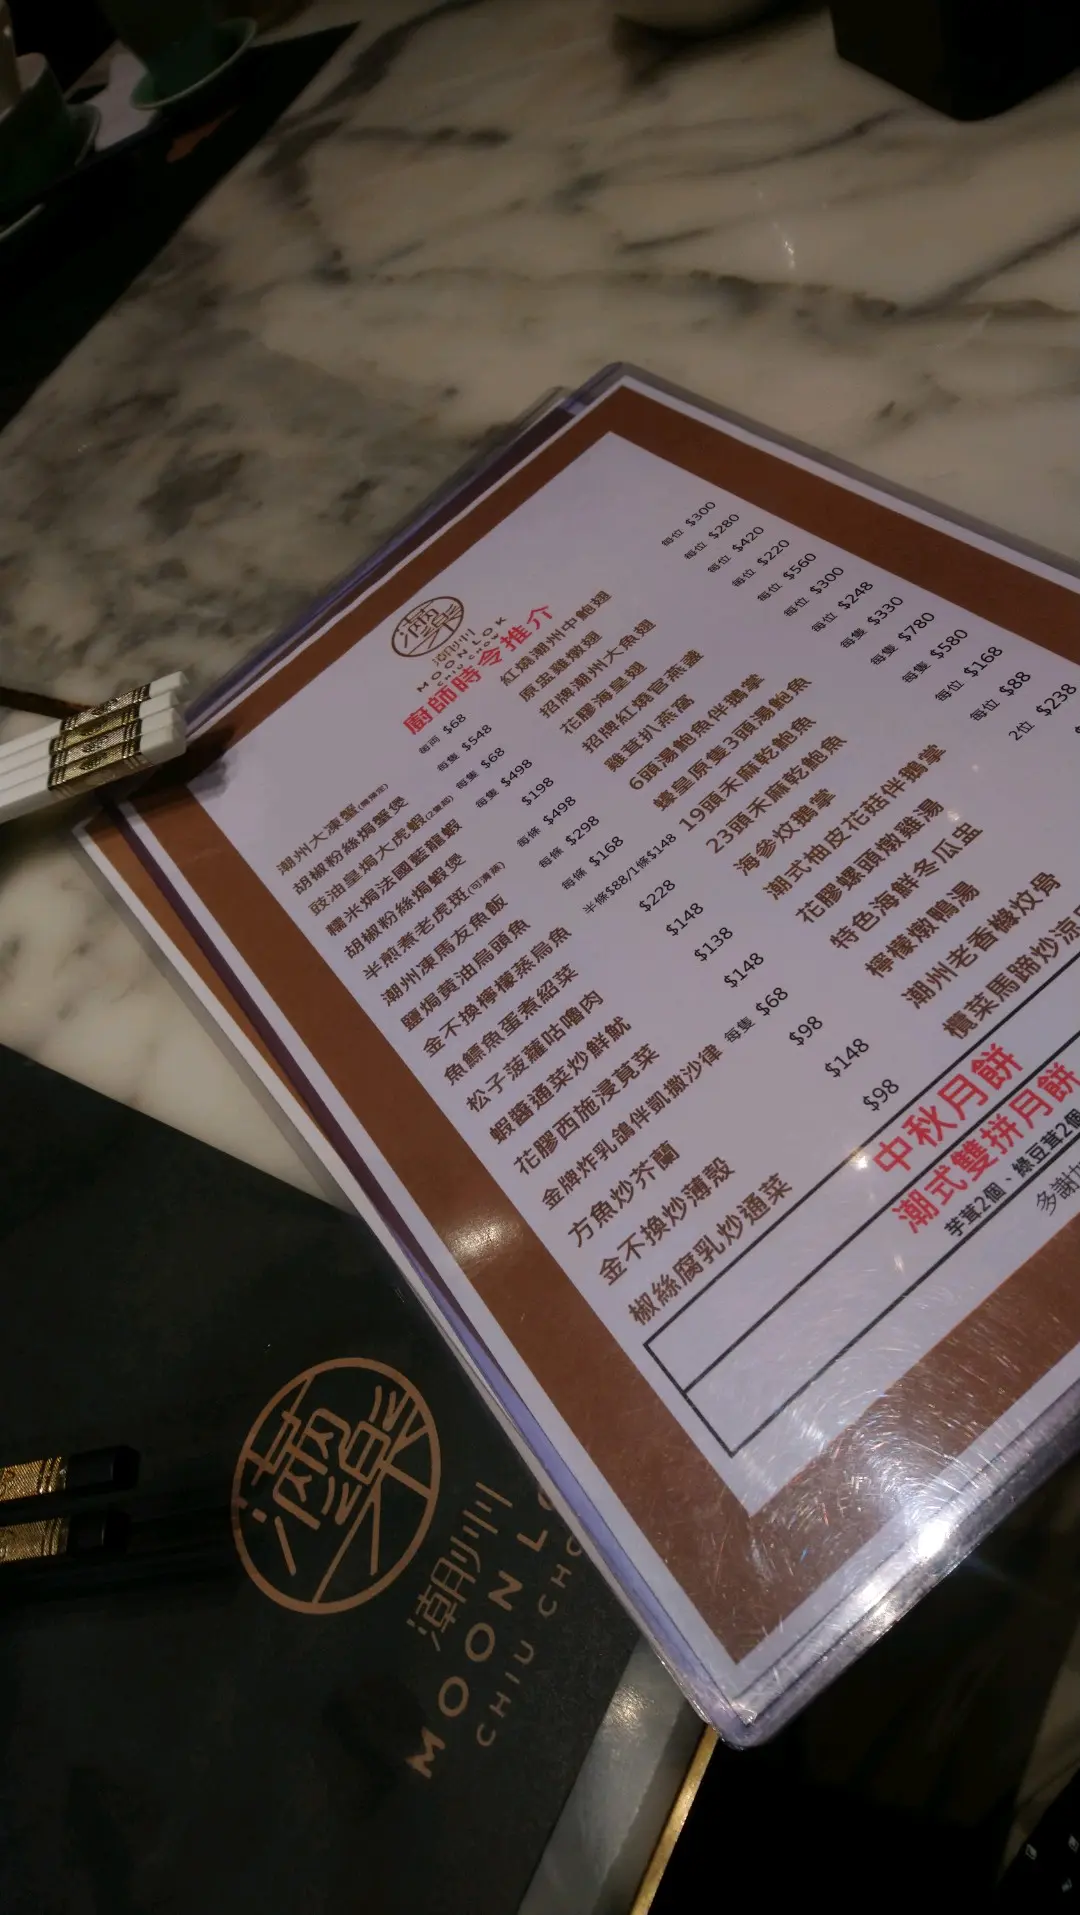 潮州
MOON LOK
CHIU CHOW
廚師時令推介
潮州大凍蟹 每両 $68
胡椒粉絲焗蟹煲 每隻 $548
豉油皇焗大虎蝦(2隻起) 每隻 $68
糯米焗法國藍龍蝦 每隻 $498
胡椒粉絲焗蝦煲 $198
半煎煮老虎斑(可清蒸) 每條 $498
潮州凍馬友魚飯 每條 $298
鹽焗黃油烏頭魚 每條 $168
金不換檸檬蒸烏魚 半條$88/1條$148
魚鰾魚蛋煮紹菜 $228
松子菠蘿咕嚕肉 $148
蝦醬通菜炒鮮魷 $138
花膠西施浸莧菜 $148
金牌炸乳鴿伴凱撒沙律 每隻 $68
方魚炒芥蘭 $98
金不換炒薄殼 $148
椒絲腐乳炒通菜 $98
紅燒潮州中鮑翅 每位 $300
原盅雞燉翅 每位 $280
招牌潮州大魚翅 每位 $420
花膠海皇翅 每位 $220
招牌紅燒官燕盞 每位 $560
雞茸扒燕窩 每位 $300
6頭湯鮑魚伴鵝掌 每位 $248
蠔皇原隻3頭湯鮑魚 每隻 $330
19頭禾麻乾鮑魚 每隻 $780
23頭禾麻乾鮑魚 每隻 $580
海參炆鵝掌 每位 $168
潮式柚皮花菇伴鵝掌 每位 $88
花膠螺頭燉雞湯 2位 $238
特色海鮮冬瓜盅
檸檬燉鴨湯
潮州老香櫞炆骨
欖菜馬蹄炒涼
中秋月餅
潮式雙拼月餅
芋茸2個、綠豆茸2個
多謝加
潮州
MOON LO
CHIU CHO